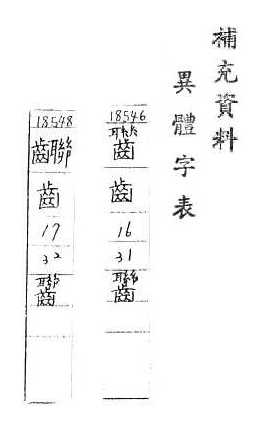 補充資料
異體字表
18546
齒
16
31
18548
齒
17
32